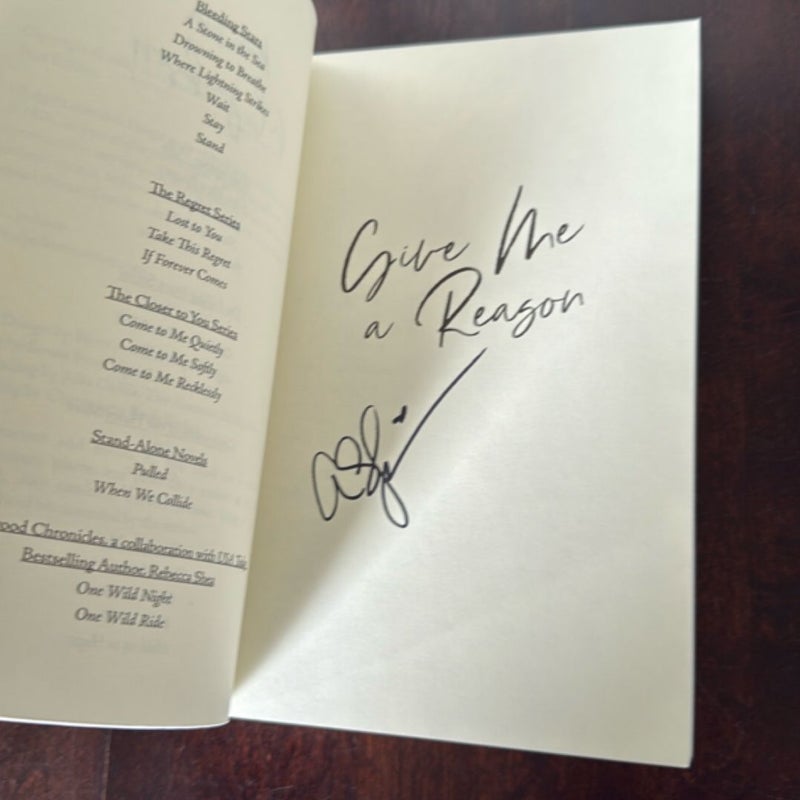 Bleeding Stars
A Stone in the Sea
Drowning to Breathe
Where Lightning Strikes
Wait
Stay
Stand
The Regret Series
Lost to You
Take This Regret
If Forever Comes
The Closer to You Series
Come to Me Quietly
Come to Me Softly
Come to Me Recklessly
Stand-Alone Novels
Pulled
When We Collide
ood Chronicles, a collaboration with USA
Bestselling Author, Rebecca Shea
One Wild Night
One Wild Ride
Give Me
a Reason